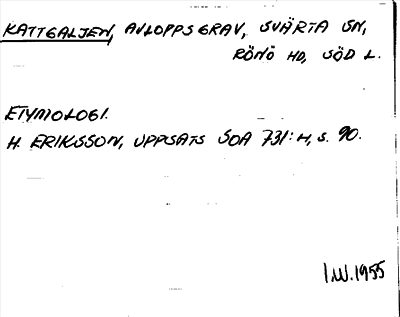 KATTGALJEN, AVLOPPSGRAV, SVÄRTA SN,
RÖNÖ HD, SÖD L.
ETYMOLOGI.
H. ERIKSSON, UPPSATS SOA 731:H, S. 90.
I.W.1955